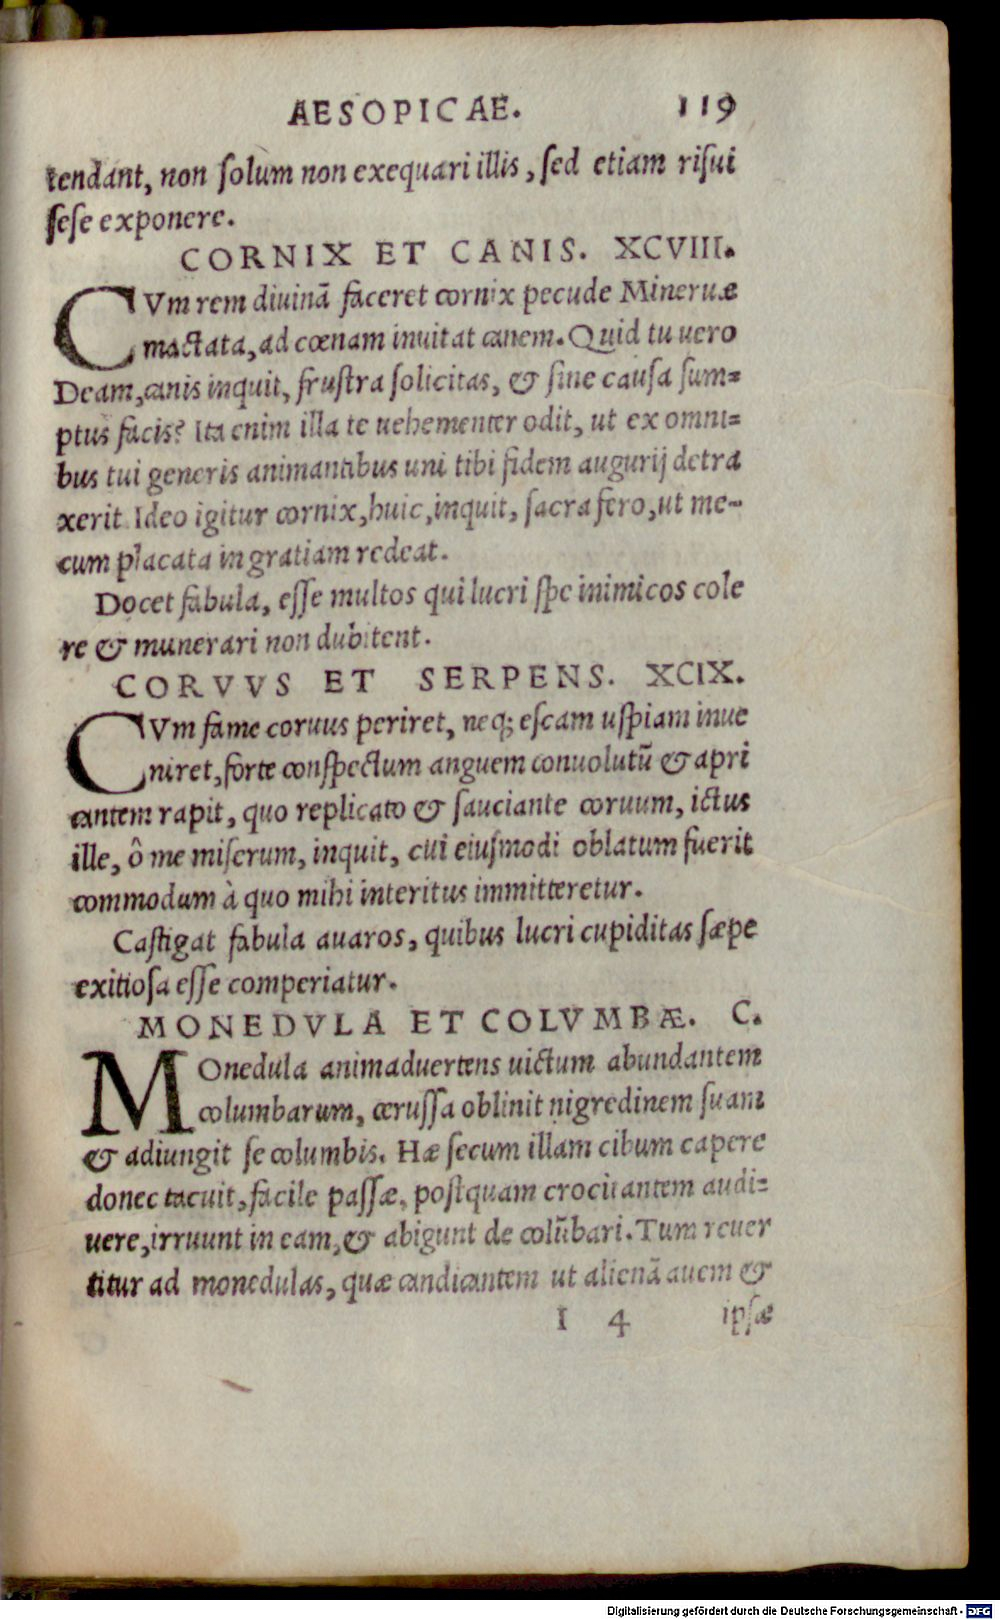 AESOPICAE. 119
tendant, non ſolum non exequari illis, ſed etiam riſui
ſeſe exponere.
CORNIX ET CANIS. XCVIII.
CVm rem diuinā faceret cornix pecude Mineruæ
mactata, ad cœnam inuitat canem. Quid tu uero
Deam, canis inquit, fruſtra ſolicitas, & ſine cauſa ſum=
ptus facis? Ita enim illa te uehementer odit, ut ex omni=
bus tui generis animantibus uni tibi fidem augurij detra
xerit. Ideo igitur cornix, huic, inquit, ſacra fero, ut me-
cum placata in gratiam redeat.
Docet fabula, eſſe multos qui lucri ſpe inimicos cole
re & munerari non dubitent.
CORVVS ET SERPENS. XCIX.
CVm fame coruus periret, neq; eſcam uſpiam inue
niret, forte conſpectum anguem conuolutū & apri
cantem rapit, quo replicato & ſauciante coruum, ictus
ille, ô me miſerum, inquit, cui eiuſmodi oblatum fuerit
commodum à quo mihi interitus immitteretur.
Caſtigat fabula auaros, quibus lucri cupiditas ſæpe
exitioſa eſſe comperiatur.
MONEDVLA ET COLVMBÆ. C.
MOnedula animaduertens uictum abundantem
columbarum, ceruſſa oblinit nigredinem ſuam
& adiungit ſe columbis. Hæ ſecum illam cibum capere
donec tacuit, facile paſſæ, poſtquam crocitantem audi=
uere, irruunt in eam, & abigunt de colūbari. Tum reuer
titur ad monedulas, quæ candicantem ut alienā auem &
I 4 ipſæ
Digitalisierung gefördert durch die Deutsche Forschungsgemeinschaft - DFG